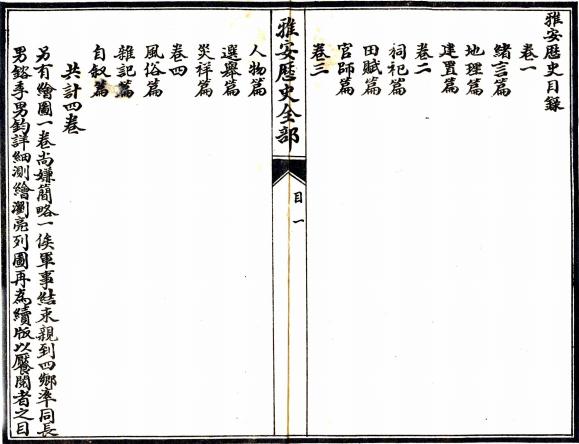 雅安歷史目錄
卷一
緒言篇
地理篇
建置篇
卷二
祠祀篇
田賦篇
官師篇
卷三
雅安歷史全部
目一
人物篇
選舉篇
災祥篇
卷四
風俗篇
雜記篇
自叙篇
共計四卷
另有繪圖一卷尚嫌簡略一俟軍事結束親到四鄉率同長
男鎔季男鈞詳細測繪瀏亮列圖再為續版以饜閱者之目